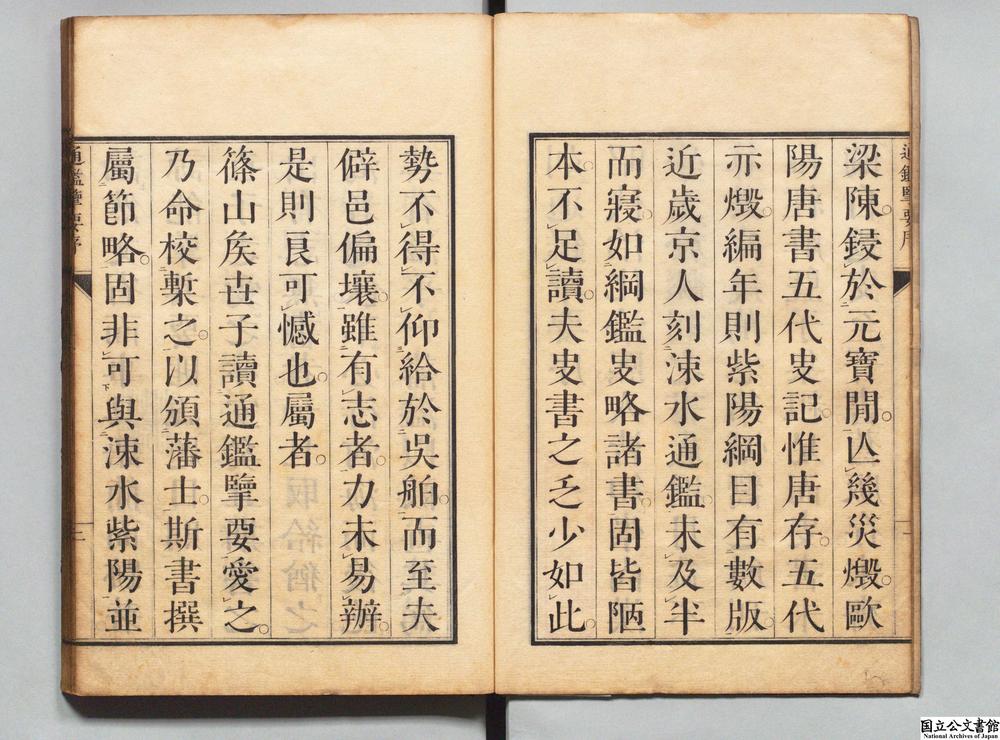 通鑑擥要序
梁陳。鋟於元寶閒。亾幾災燬。歐
陽唐書五代史記。惟唐存。五代
亦燬。編年則紫陽綱目有數版。
近歲京人刻涑水通鑑。未及半
而寢。如綱鑑史略諸書。固皆陋
本。不足讀。夫史書之乏少如此。
勢不得不仰給於吳舶。而至夫
僻邑偏壤。雖有志者。力未易辦。
是則良可憾也。屬者。
篠山矦世子讀通鑑擥要愛之。
乃命校槧之。以頒藩士。斯書撰
屬節略。固非可與涑水紫陽並
通鑑擥要序
国立公文書館
National Archives of Japan